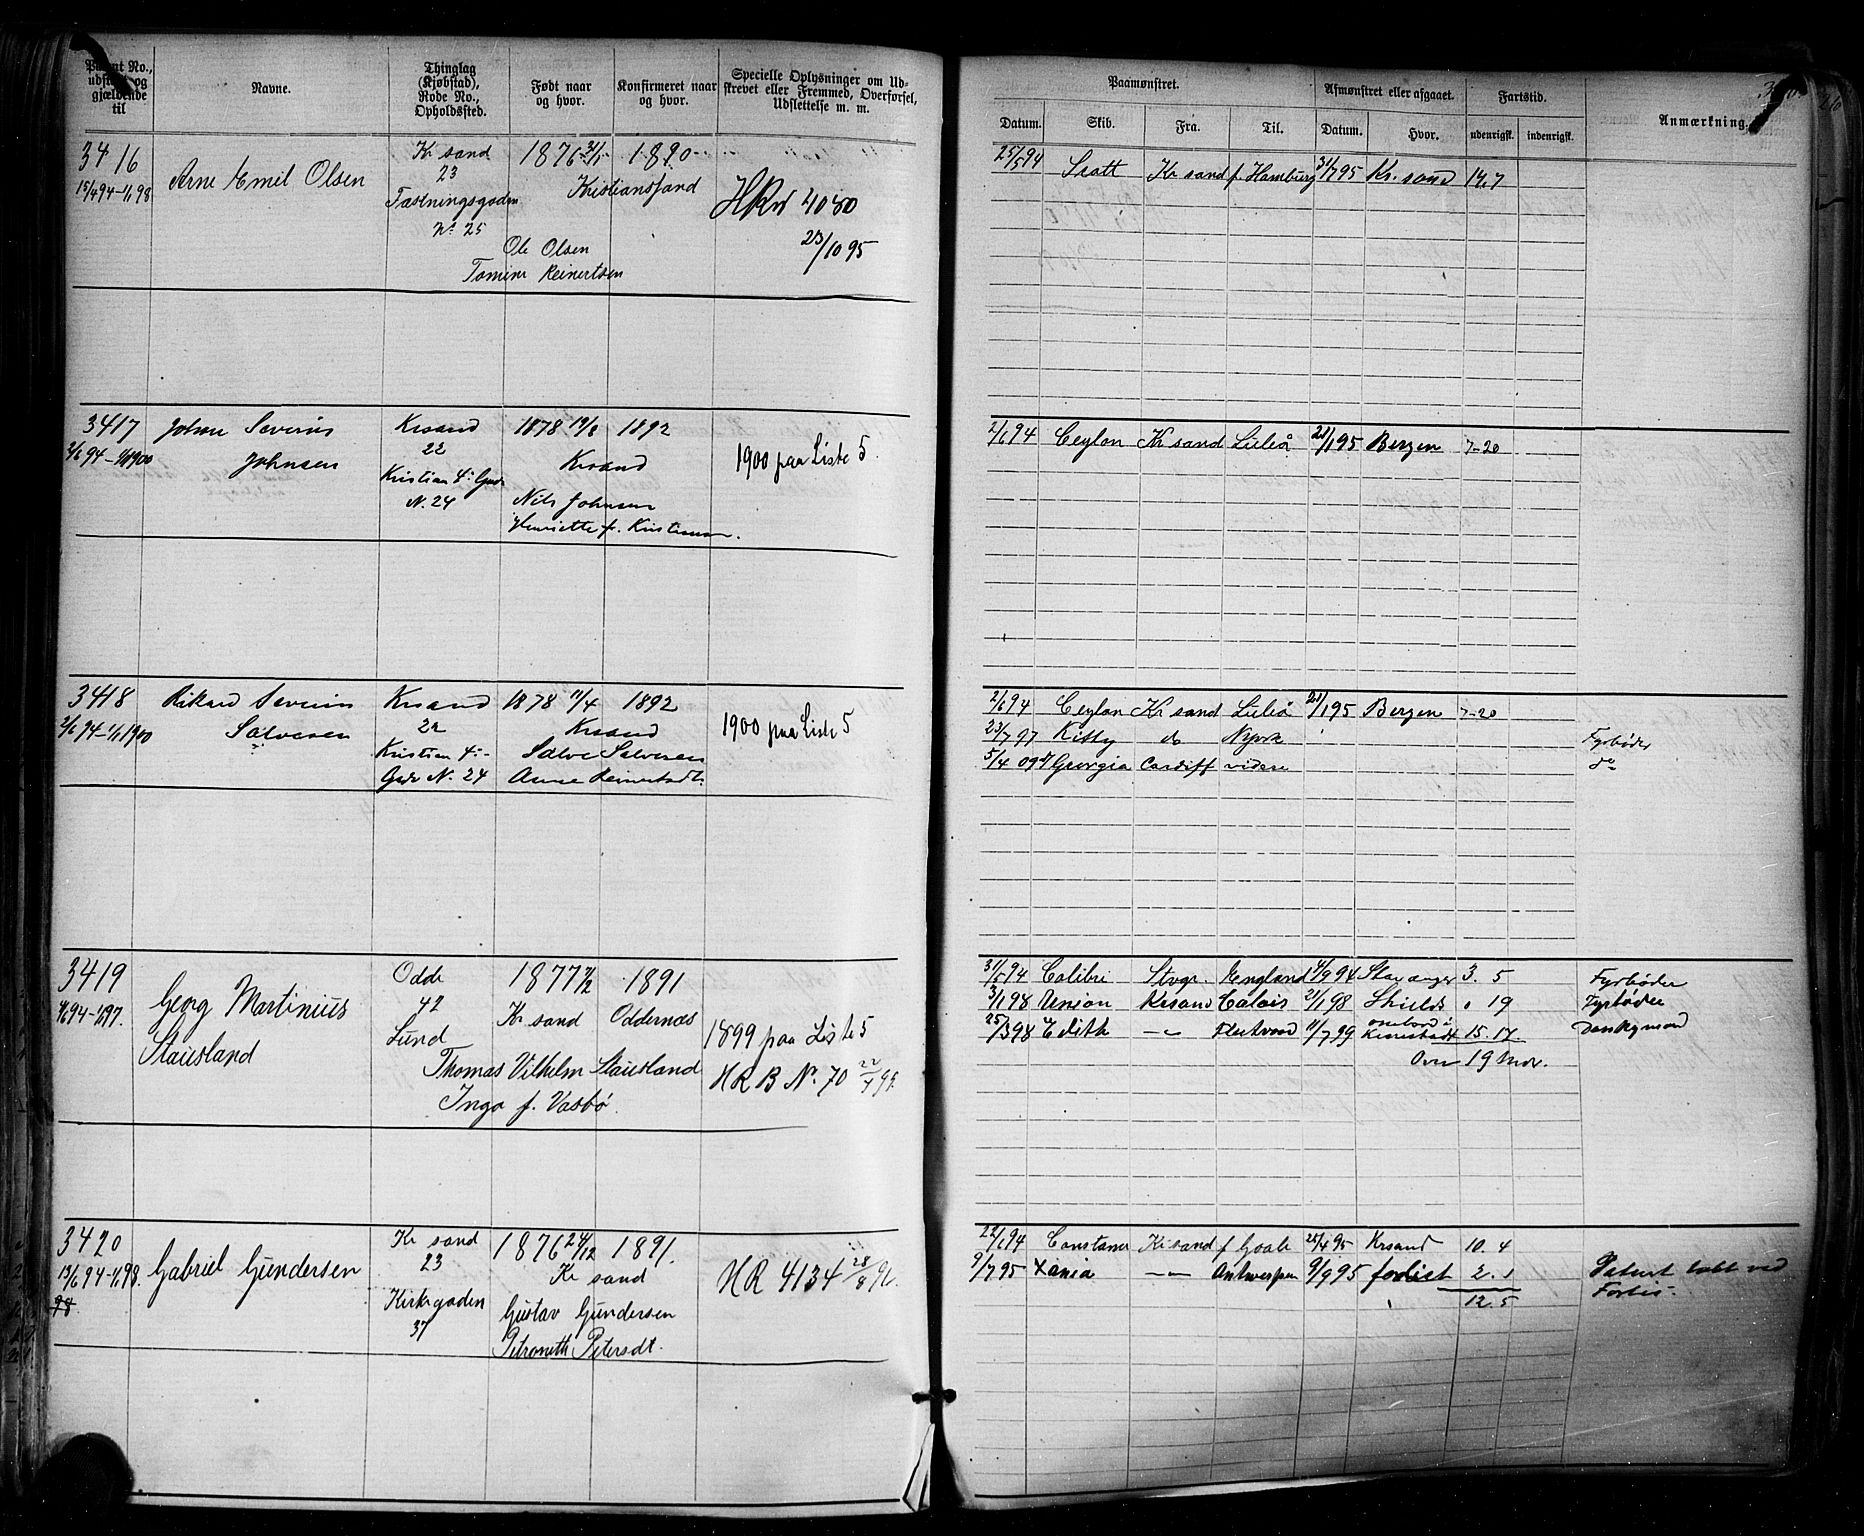 Patent No., udstedt og gjældende til
Navne.
Thinglag (Kjøbstad), Rode No., Opholdssted.
Født naar og hvor.
Konfirmeret naar og hvor.
Specielle Oplysninger om Udskrevet eller Fremmed, Overførsel, Udslettelse m. m.
Paamønstret.
Datum. Skib. Fra. Til.
Afmønstret eller afgaaet.
Datum. Hvor.
Fartstid.
udenrigsk. indenrigsk.
Anmærkning.
3416
15/4 94-1/1 98
Arne Emil Olsen
Kr sand
23
Fæstningsgaden
No 25
1876 31/5 1890
Kristianssand
Ole Olsen
Tomine Reinertsen
HR No 4080
23/10 95
25/5 94 Scott Kr sand f. Hamburg 31/7 95 Kr. sand 14,7
3417
2/6 94-1/1 1900
Johan Severin
Johnsen
Krsand
22
Kristian 4: Gade
N. 24
1878 19/8 1892
Krsand
Nils Johnsen
Henriette f. Kristiansen.
1900 paa Liste 5.
2/6 94 Ceylon Kr sand Luleå 21/1 95 Bergen 7-20
3418
2/6 94-1/1 1900
Rikard Severin
Salvesen
Krsand
22
Kristian 4:-
Gade N. 24
1878 11/4 1892
Krsand
Salve Salvesen
Anne Reinertsdt.
1900 paa Liste 5
2/6 94 Ceylon Kr sand Luleå 21/1 95 Bergen 7-20
23/7 97 Kitty do Nyork Fyrbøder
5/4 09 Georgia Cardiff videre do
3419
94-1/1 97.
Georg Martinius
Stausland
Odde
42
Lund
1877 1891
Kr sand Oddernæs
Thomas Vilhelm Stausland
Inga f. Vasbø.
1899 paa Liste 5
HR B No. 70
31/5 94 Colibri Stvgr. England 4/9 94 Stavanger 3. 5 Fyrbøder
3/1 98 Union Krsand Calais 21/1 98 Shields 19 Fyrbøder
25/3 98 Edith -"- Fleetwood 11/7 99 15.17. Donkeymand
Over 19 Mdr.
3420
13/6 94-1/1 98.
98.
Gabriel Gundersen
Kr sand
23
Kirkegaden
37
1876 24/12 1891.
Kr sand
Gustav Gundersen
Petronelle Petersdt.
HR 4134 28/8
22/6 94 Constance Kr sand f Goole 25/4 95 Krsand 10.4
9/7 95 Xania -"- Antwerpen 9/9 95 forlist 2.1 Patent tabt ved
12.5 Forlis.